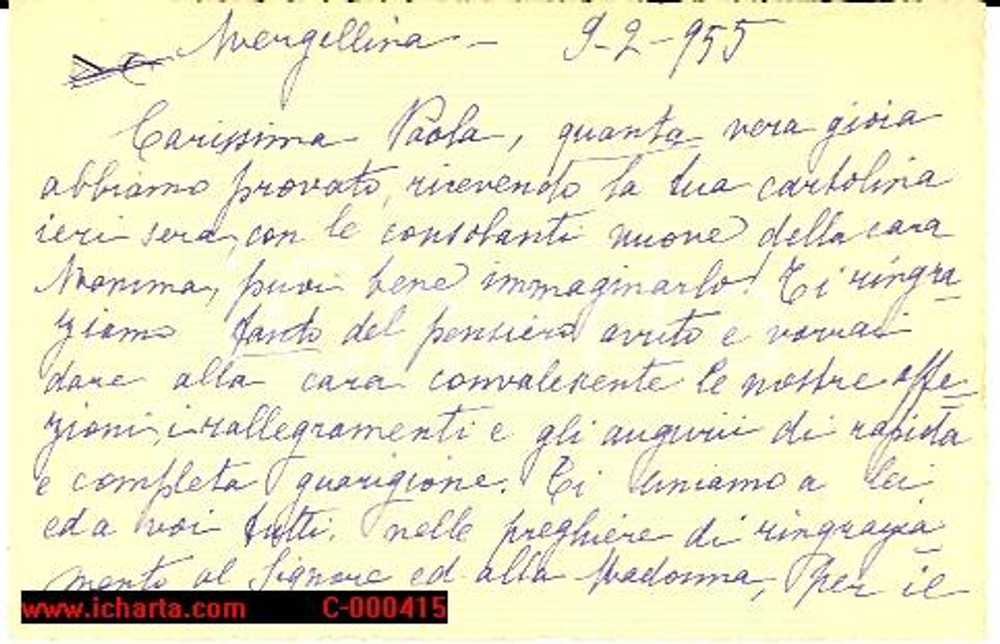 Mergellina - 9-2-955
Carissima Paola, quanta vera gioia
abbiamo provato, ricevendo la tua cartolina
ieri sera, con le consolanti nuove della cara
Mamma, puoi bene immaginarlo! Ti ringra
ziamo tanto del pensiero avuto e vorrai
dare alla cara convalescente le nostre affe
zioni, i rallegramenti e gli augurii di rapida
e completa guarigione. Ci uniamo a lei
ed a voi tutti, nelle preghiere di ringrazia
mento al Signore ed alla Madonna, per il
www.icharta.com C-000415